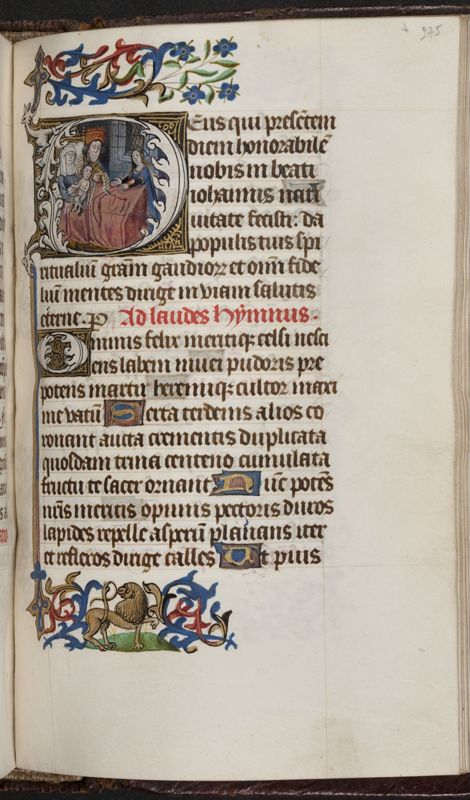 275
Deus qui presētem
diem honorabilē
nobis in beati
iohannis nati
uitate fecisti: da
populis tuis spi
ritualiū grām gaudioꝝ et oīm fide
liū mentes dirige in viam salutis
eterne. p Ad laudes hymnus.
O nimis felix meritiqꝫ celsi nesci
ens labem niuei pudoris pre
potens martir heremiqꝫ cultor maxi
me vatū Serta terdenis alios co
ronant aucta crementis duplicata
quosdam trina centeno cumulata
fructu te sacer ornant Nūc potēs
nr̄is meritis opimis pectoris duros
lapides repelle asperū planans iter
et reflexos dirige calles Ut pius